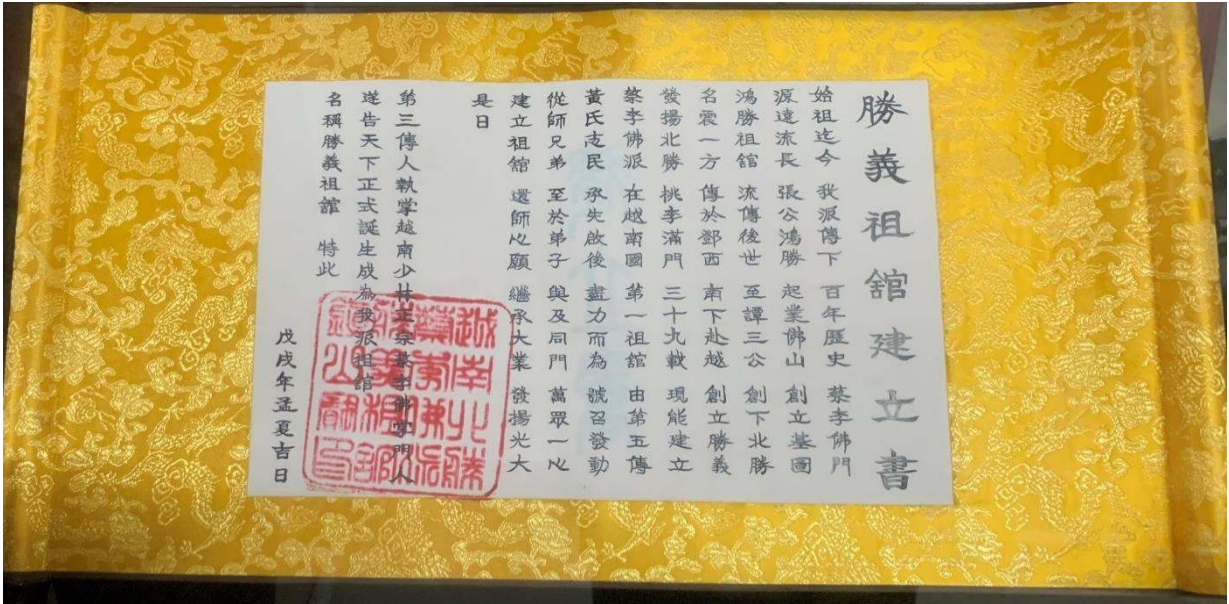 勝義祖舘建立書
始祖迄今 我派傳下 百年歷史 蔡李佛門
源遠流長 張公鴻勝 起業佛山 創立基圖
鴻勝祖舘 流傳後世 至譚三公 創下北勝
名震一方 傳於鄧西 南下赴越 創立勝義
發揚北勝 桃李滿門 三十九載 現能建立
蔡李佛派 在越南國 第一祖舘 由第五傳
黃氏志民 承先啟後 盡力而為 號召發動
從師兄弟 至於弟子 與及同門 萬眾一心
建立祖舘 還師心願 繼承大業 發揚光大
是日
第三傳人執掌越南少林正宗蔡李佛掌門人
遂告天下正式誕生成為我派祖舘
名稱勝義祖舘 特此
戊戌年孟夏吉日
越南北勝
蔡李佛派
勝義祖舘